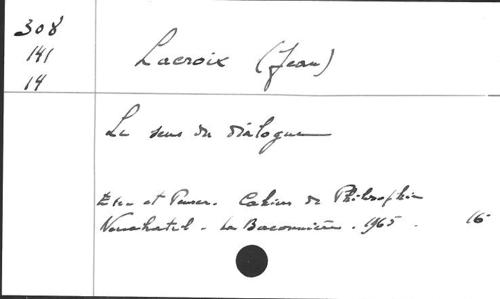 308
141
14
Lacroix (Jean)
Le sens du dialogue
Etre et Penser. Cahiers de Philosophie
Neuchatel - La Baconnière . 1965 . 16-